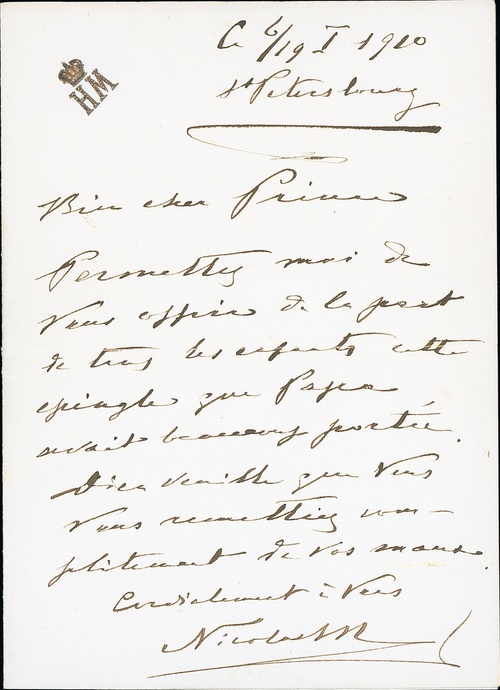 HM
Ce 6/19 I 1910
St Petersbourg
Bien cher Prince
Permettez moi de
Vous offrir de la part
de tous les enfants cette
epingle que Papa
avait beaucoup portée.
Dieu veuille que Vous
Vous remettiez com-
plètement de vos maux.
Cordialement à Vous
NicolasM